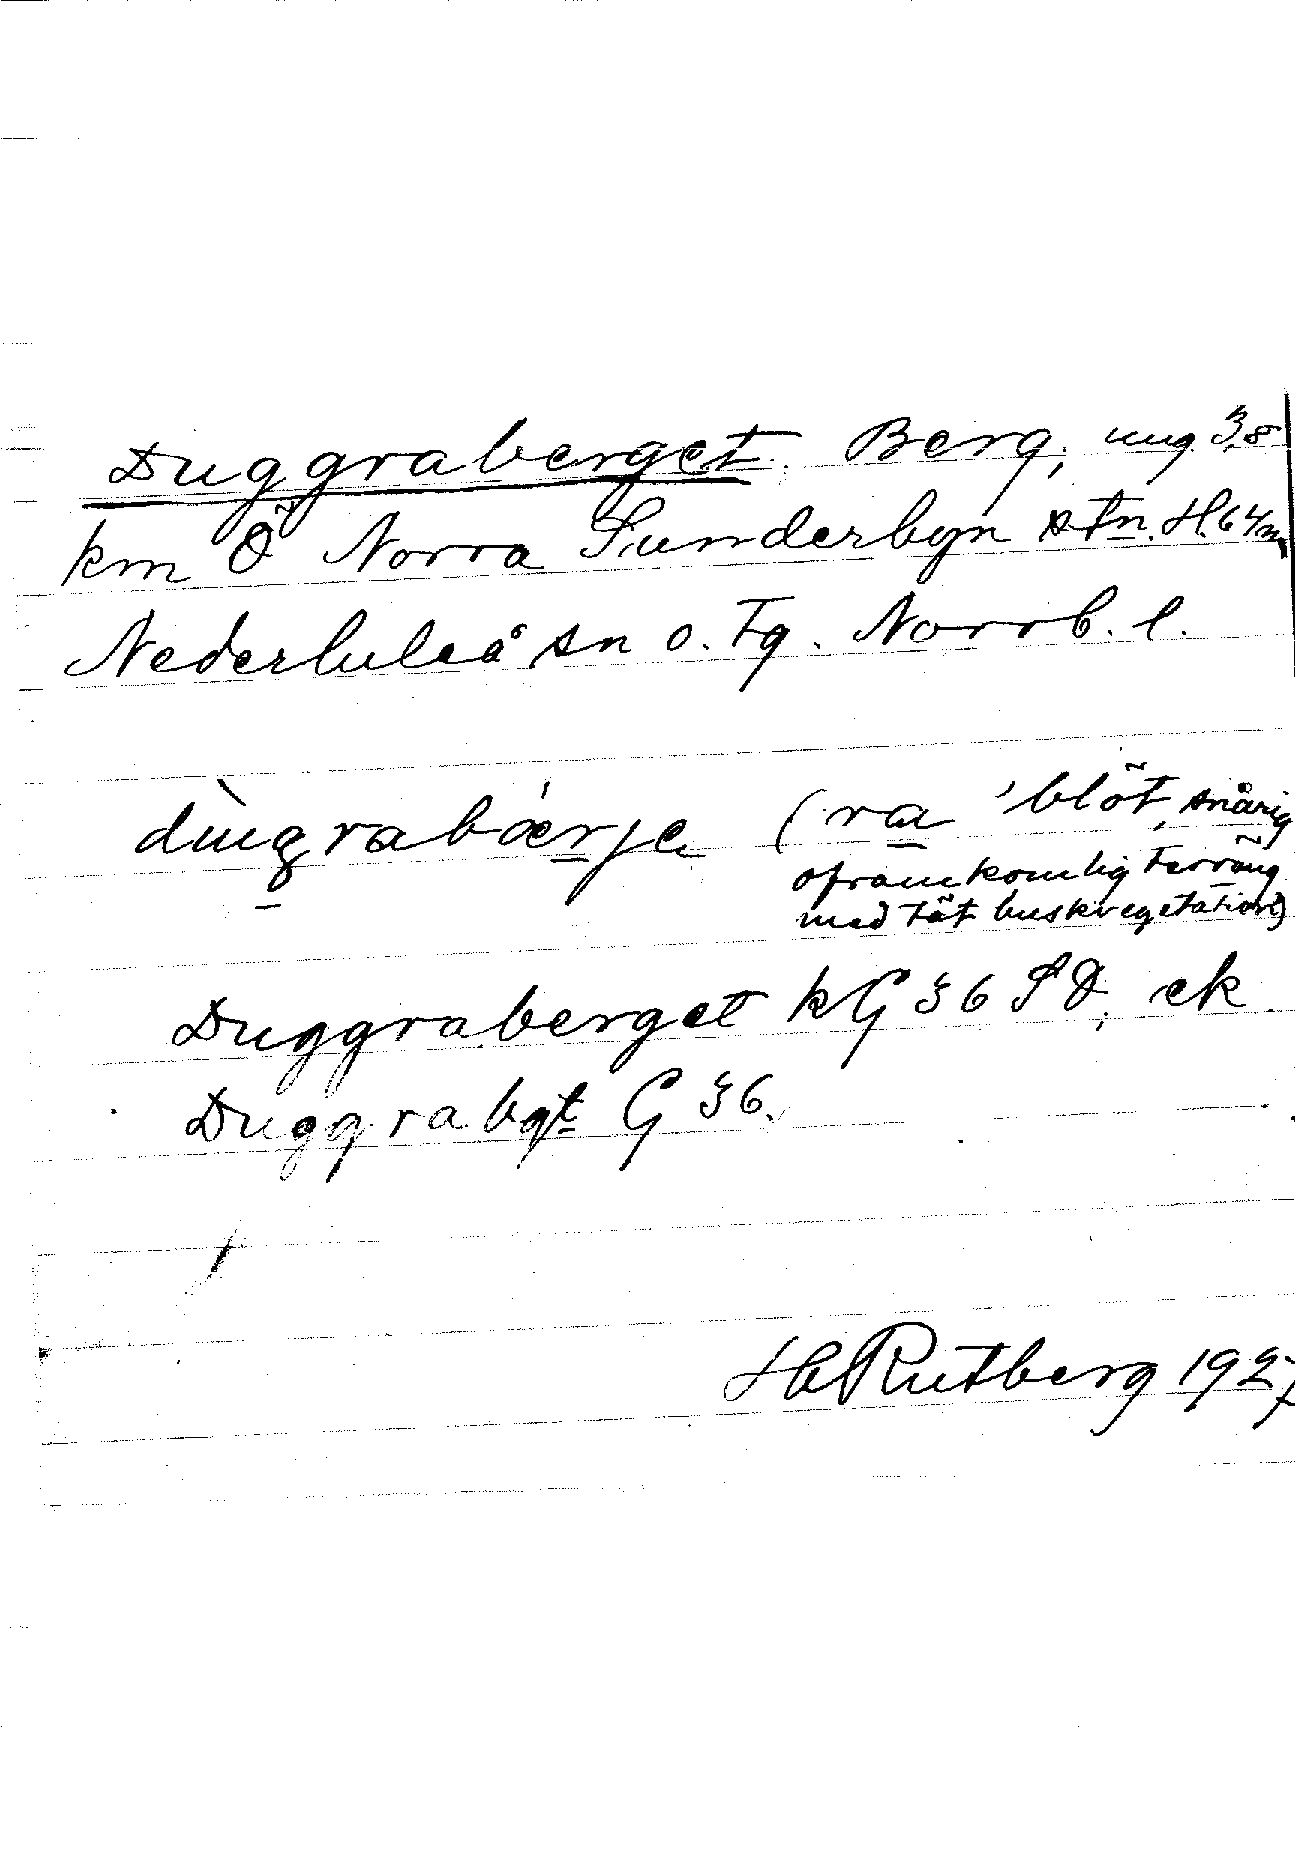 Duggraberget. Berg, ung. 3,8
km Ö Norra Sunderbyn stn. H. 64 m
Nederluleå sn o. tg. Norrb. l.
dùgrabǽrje (ra 'blöt, snårig
oframkomlig terräng
med tät buskvegetation')
Duggraberget kG 36 SO, ek
Duggrabgt G 36.
H Rutberg 1927